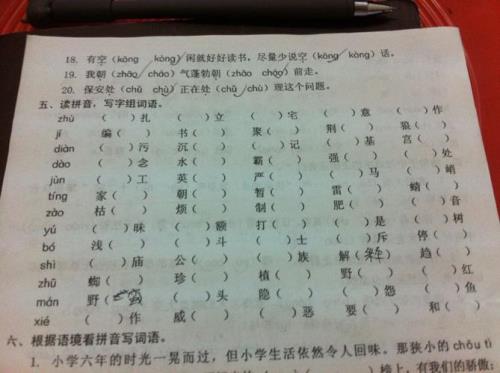 18. 有空(kōng kòng)闲就好好读书，尽量少说空(kōng kòng)话。
19. 我朝(zhāo cháo)气蓬勃朝(zhāo cháo)前走。
20. 保安处(chǔ chù)正在处(chǔ chù)理这个问题。
五、读拼音，写字组词语。
zhù ( )扎 ( )立 ( )宅 ( )意 ( )作
jí 编( ) 书( ) 聚( ) 荆( ) 狼( )
diàn ( )污 沉( ) ( )记 ( )基 宫( )
dào ( )念 水( ) 霸( ) 强( ) ( )处
jùn ( )工 英( ) 严( ) ( )马 ( )峭
tíng 家( ) 朝( ) 暂( ) 雷( ) 蜻( )
zào 枯( ) 烦( ) 制( ) 肥( ) ( )音
yú ( )昧 ( ) 打( ) ( )是 ( )树
bó 浅( ) ( )斗 ( )士 ( )斥 停( )
shì ( )庙 公( ) ( )族 解( ) 趋( )
zhū 蜘( ) 珍( ) 植( ) 野( ) ( )红
mán 野( ) ( )头 隐( ) ( )怨 ( )鱼
xié ( )作 威( ) ( )恶 要( ) 和( )
六、根据语境看拼音写词语。
1. 小学六年的时光一晃而过，但小学生活依然令人回味。那狭小的 chōu tì
榜上，有我们的骄傲；